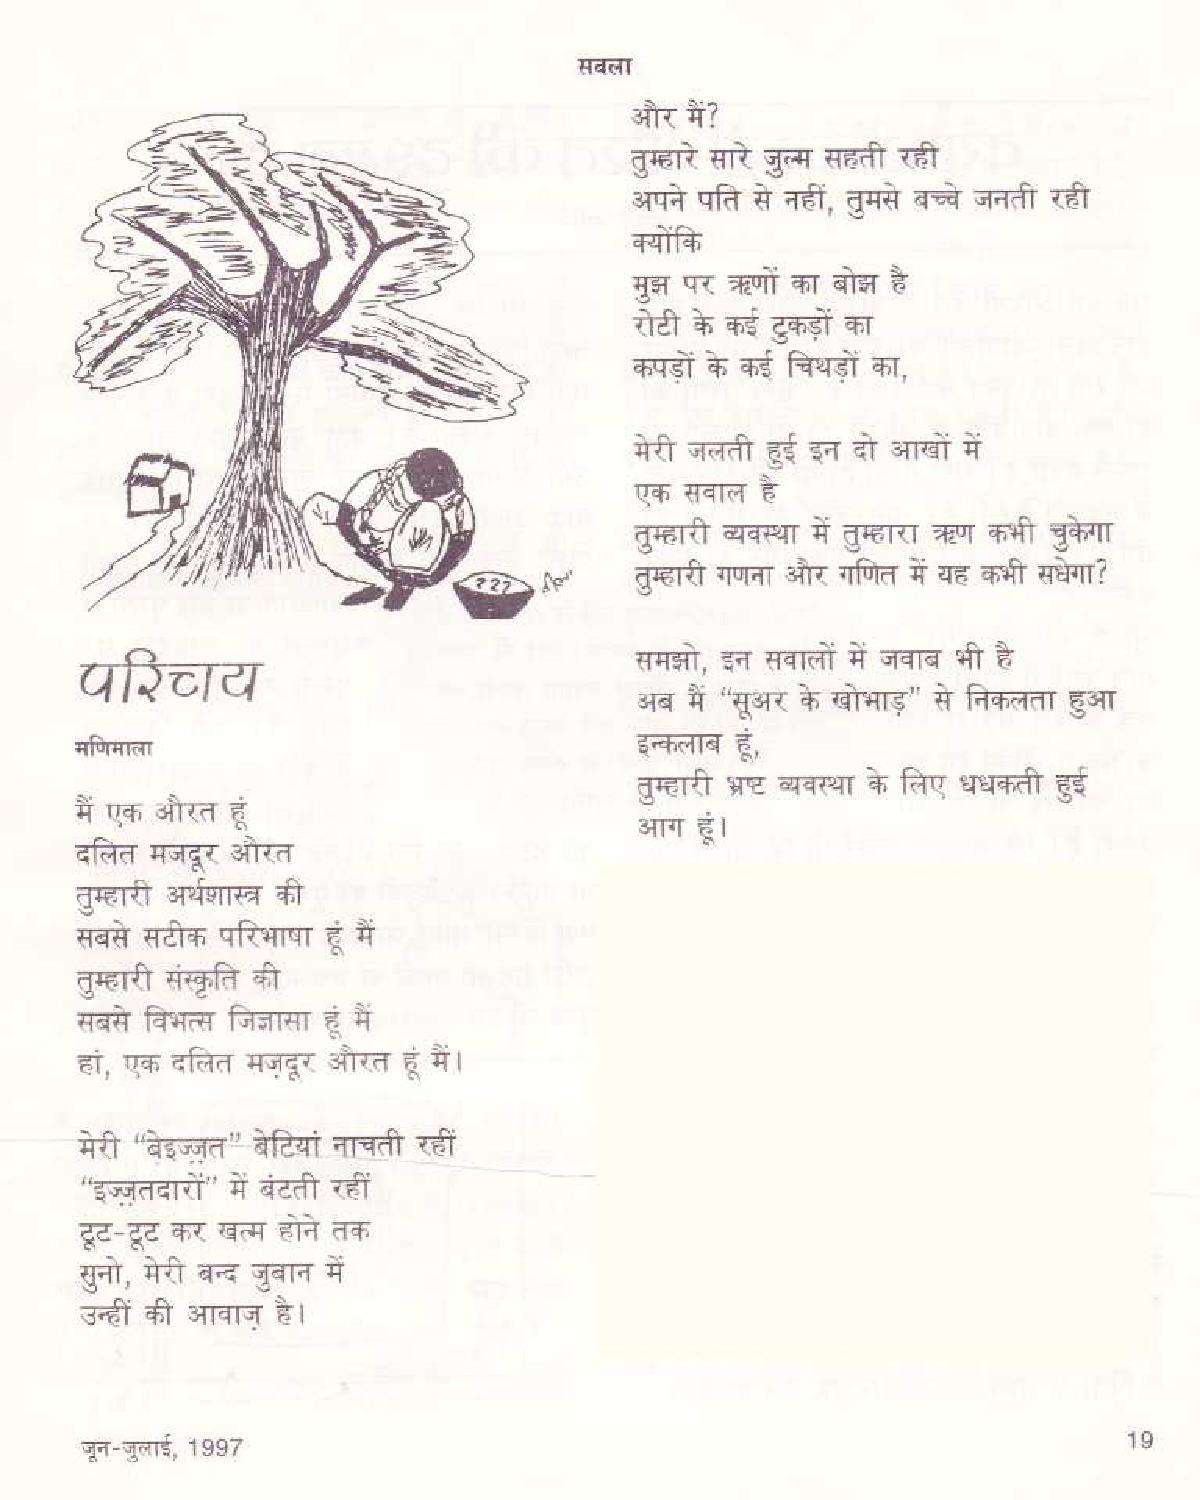 सबला
परिचय
मणिमाला
मैं एक औरत हूं
दलित मजदूर औरत
तुम्हारी अर्थशास्त्र की
सबसे सटीक परिभाषा हूं मैं
तुम्हारी संस्कृति की
सबसे विभत्स जिज्ञासा हूं मैं
हां, एक दलित मज़दूर औरत हूं मैं।
मेरी “बेइज्ज़त” बेटियां नाचती रहीं
“इज्ज़तदारों” में बंटती रहीं
टूट-टूट कर खत्म होने तक
सुनो, मेरी बन्द जुबान में
उन्हीं की आवाज़ है।
और मैं?
तुम्हारे सारे जुल्म सहती रही
अपने पति से नहीं, तुमसे बच्चे जनती रही
क्योंकि
मुझ पर ऋणों का बोझ है
रोटी के कई टुकड़ों का
कपड़ों के कई चिथड़ों का,
मेरी जलती हुई इन दो आखों में
एक सवाल है
तुम्हारी व्यवस्था में तुम्हारा ऋण कभी चुकेगा
तुम्हारी गणना और गणित में यह कभी सधेगा?
समझो, इन सवालों में जवाब भी है
अब मैं “सूअर के खोभाड़” से निकलता हुआ
इन्कलाब हूं,
तुम्हारी भ्रष्ट व्यवस्था के लिए धधकती हुई
आग हूं।
जून-जुलाई, 1997
19